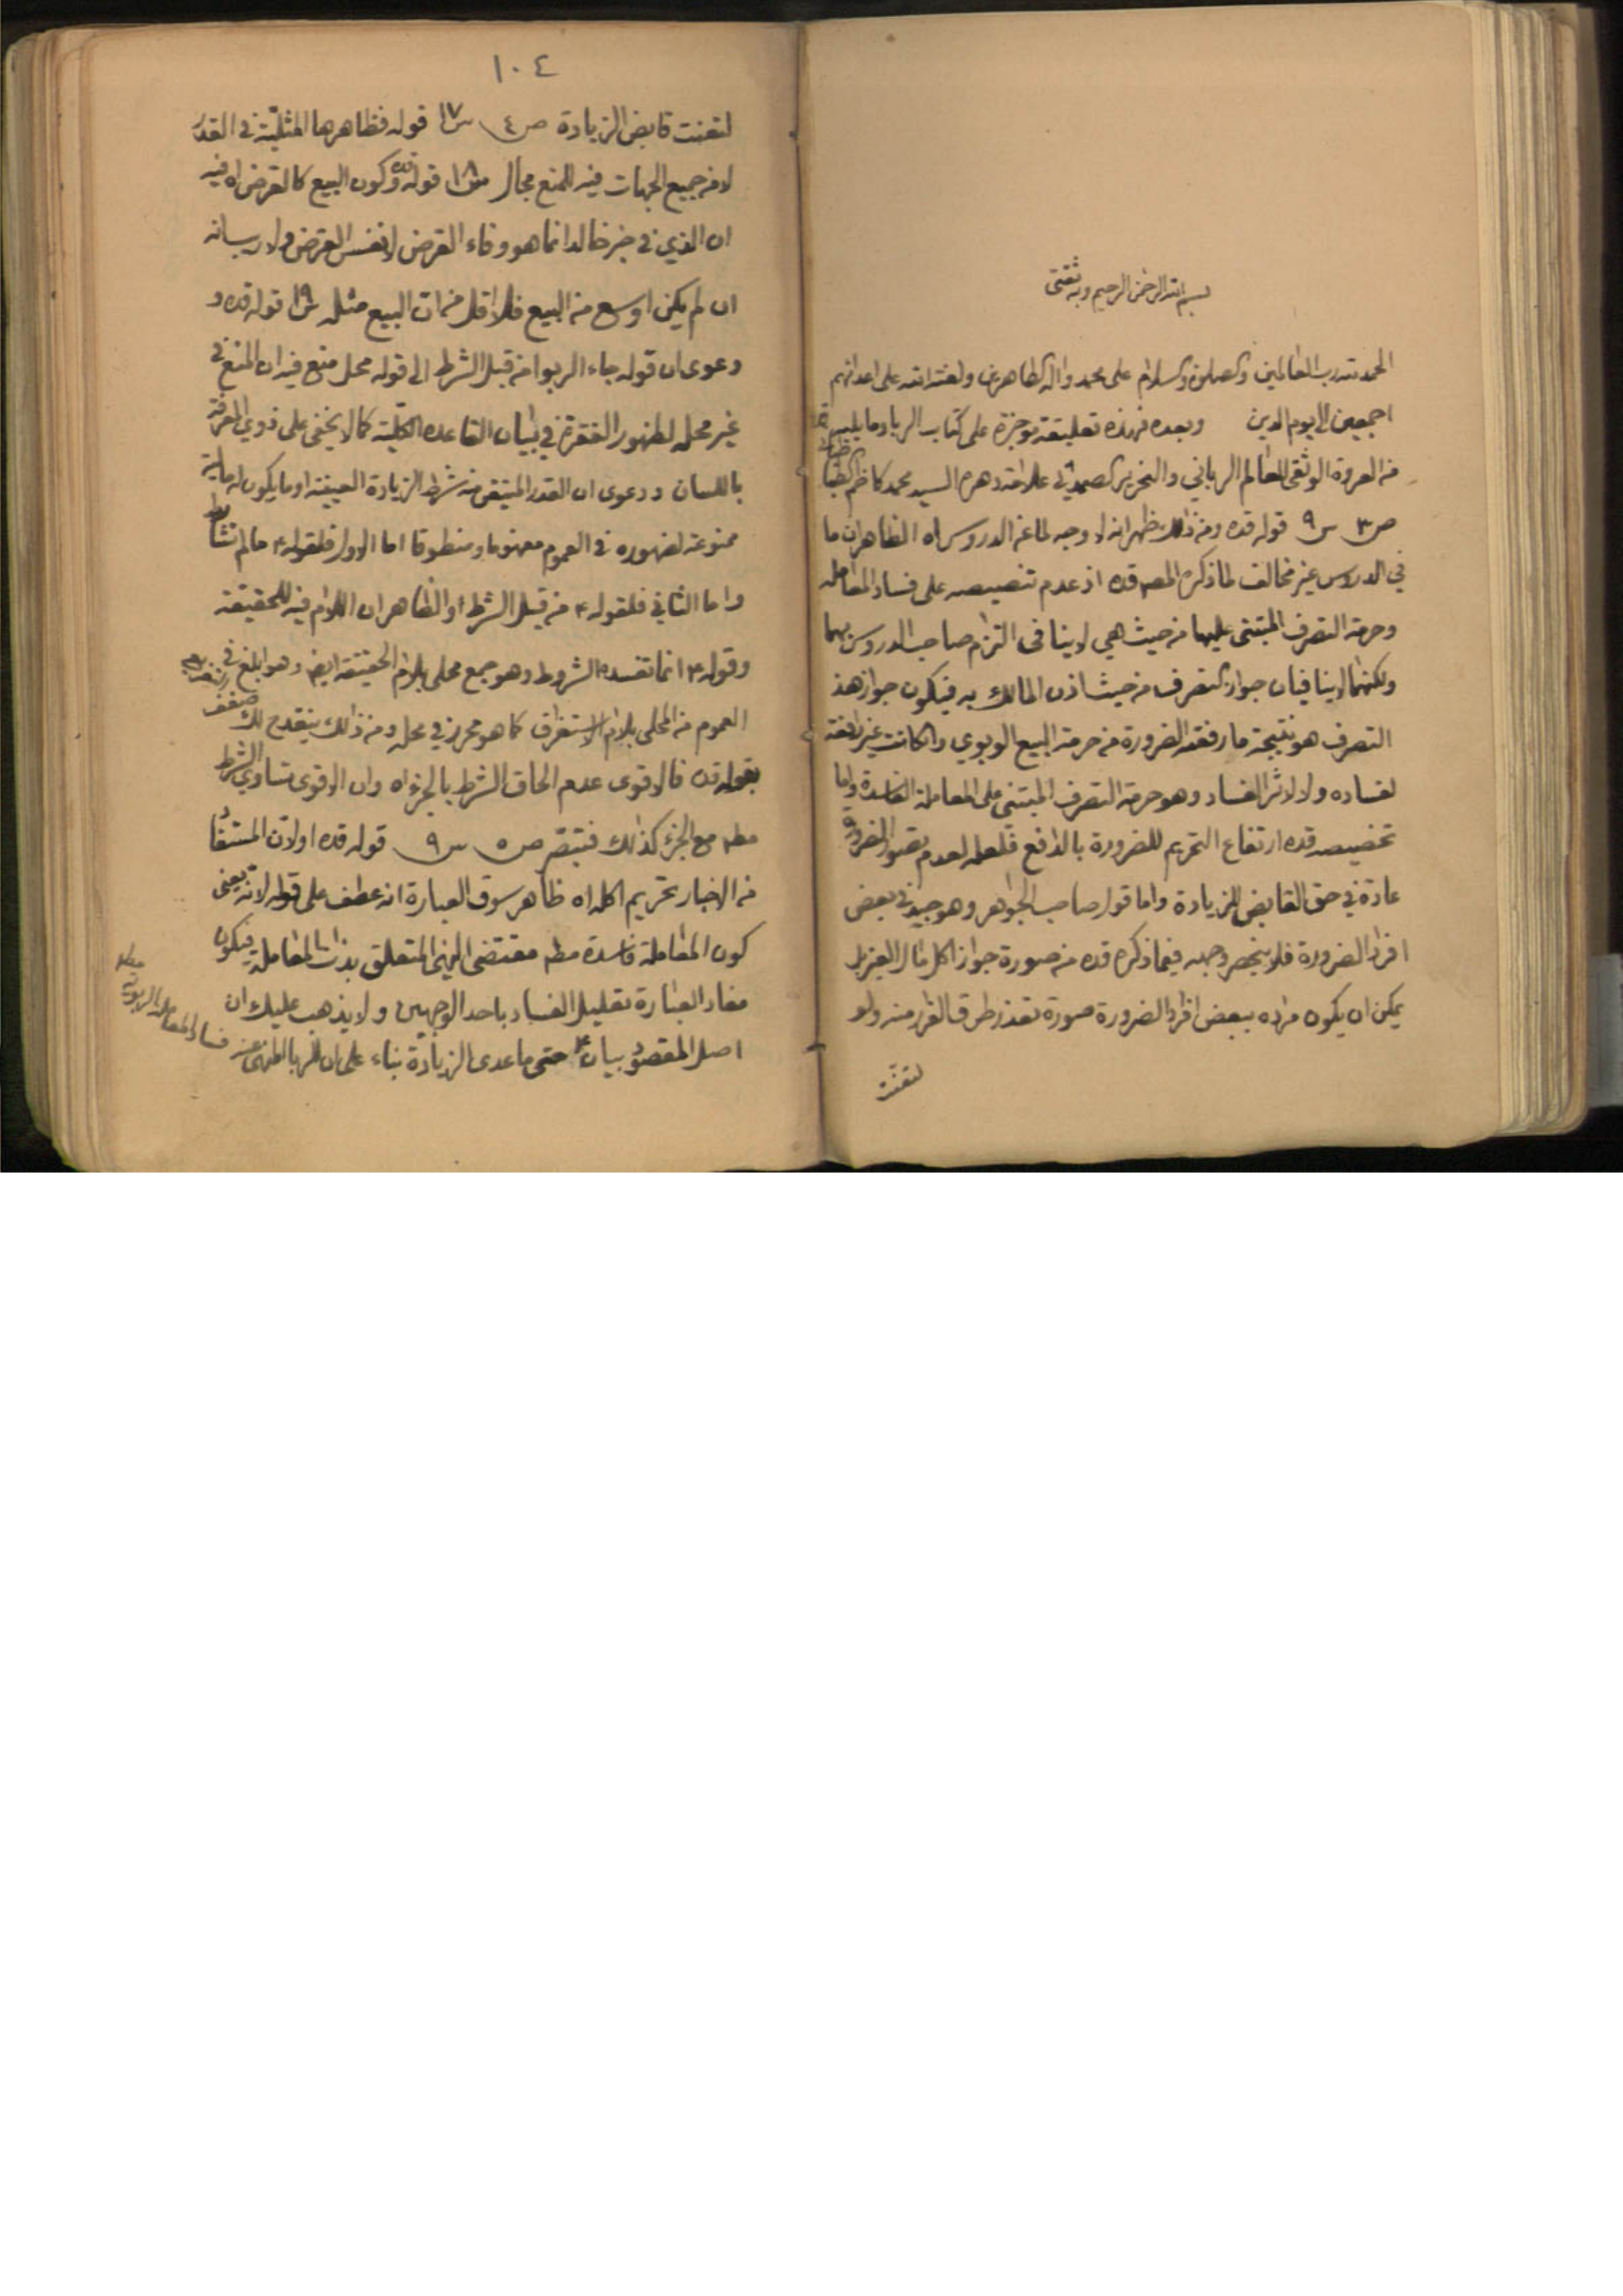 بسم الله الرحمن الرحيم وبه ثقتي
الحمد لله رب العالمين والصلوة والسلام على محمد واله الطاهرين ولعنة الله على اعدائهم
اجمعين الى يوم الدين وبعد فهذه تعليقة موجزة على كتاب الربا وما يليه
من العروة الوثقى للعالم الرباني والنحرير الصمداني علامة دهره السيد محمد كاظم الطباطبائي
ص٣ س٩ قوله قده ومن ذلك يظهر انه لا وجه لما عن الدروس اه الظاهر ان ما
في الدروس غير مخالف لما ذكره المصه قده اذ عدم تنصيصه على فساد المعامله
وحرمة التصرف المبتنى عليها من حيث هي لا ينافى التزام صاحب الدروس بهما
ولكنهما لا ينافيان جواز التصرف من حيث اذن المالك به فيكون جواز هذا
التصرف هو نتيجة ما رفعته الضرورة من حرمة البيع الربوي وان كانت غير رافعة
لفساده ولا لاثر الفساد وهو حرمة التصرف المبتنى على المعاملة الفاسدة واما
تخصيصه قده ارتفاع التحريم للضرورة بالدافع فلعله لعدم تصور الضرورة
عادة في حق القابض للزيادة واما قول صاحب الجواهر وهو جيد في بعض
افراد الضرورة فلا ينحصر وجهه فيما ذكره قده من صورة جواز اكل مال الغير بل
يمكن ان يكون مراده ببعض افراد الضرورة صورة تعذر طرق الفرار منه ولو
لتعنت
١٠٤
لتعنت قابض الزيادة ص٤ س١٧ قوله فظاهرها المثلية في القدر
لا من جميع الجهات فيه للمنع مجال س١٨ قوله قده وكون البيع كالقرض اه فيه
ان الذي في خبر خالد انما هو وفاء القرض لا نفس القرض ولا ريب انه
ان لم يكن اوسع من البيع فلا اقل من ان البيع مثله س١٩ قوله قده و
دعوى ان قوله جاء الربوا من قبل الشرط الى قوله محل منع فيه ان المنع في
غير محله لظهور الفقرة في بيان القاعدة الكلية كما لا يخفى على ذوي المعرفة
باللسان ودعوى ان القدر المتيقن منه شرط الزيادة العينية او ما يكون له مالية
ممنوعة لظهوره في العموم مفهوما ومنطوقا اما الاول فلقوله ع ما لم تشارط
واما الثاني فلقوله ع من قبل الشرط او الظاهر ان اللام فيه للحقيقة
وقوله ع انما تفسده الشروط وهو جمع محلى بلام الحقيقة ايضا وهو ابلغ في
العموم من المحلى بلام الاستغراق كما هو محرر في محله ومن ذلك ينقدح لك ضعف
بقوله قده فالاقوى عدم الحاق الشرط بالجزء اه وان الاقوى تساوي الشرط
مطه مع الجزء كذلك فتبصر ص٥ س٩ قوله قده اولان المستفاد
من الاخبار تحريم اكله اه ظاهر سوق العبارة انه عطف على قوله لانه يعنى
كون المعاملة فاسدة مطه مقتضى النهي المتعلق بذات المعاملة فيكون
مفاد العبارة تعليل الفساد باحد الوجهين ولا يذهب عليك ان
اصل المقصود بيان حتى ما عدى الزيادة بناء على ان الربا المنهى عنه
فساد المعاملة الربوية مطه